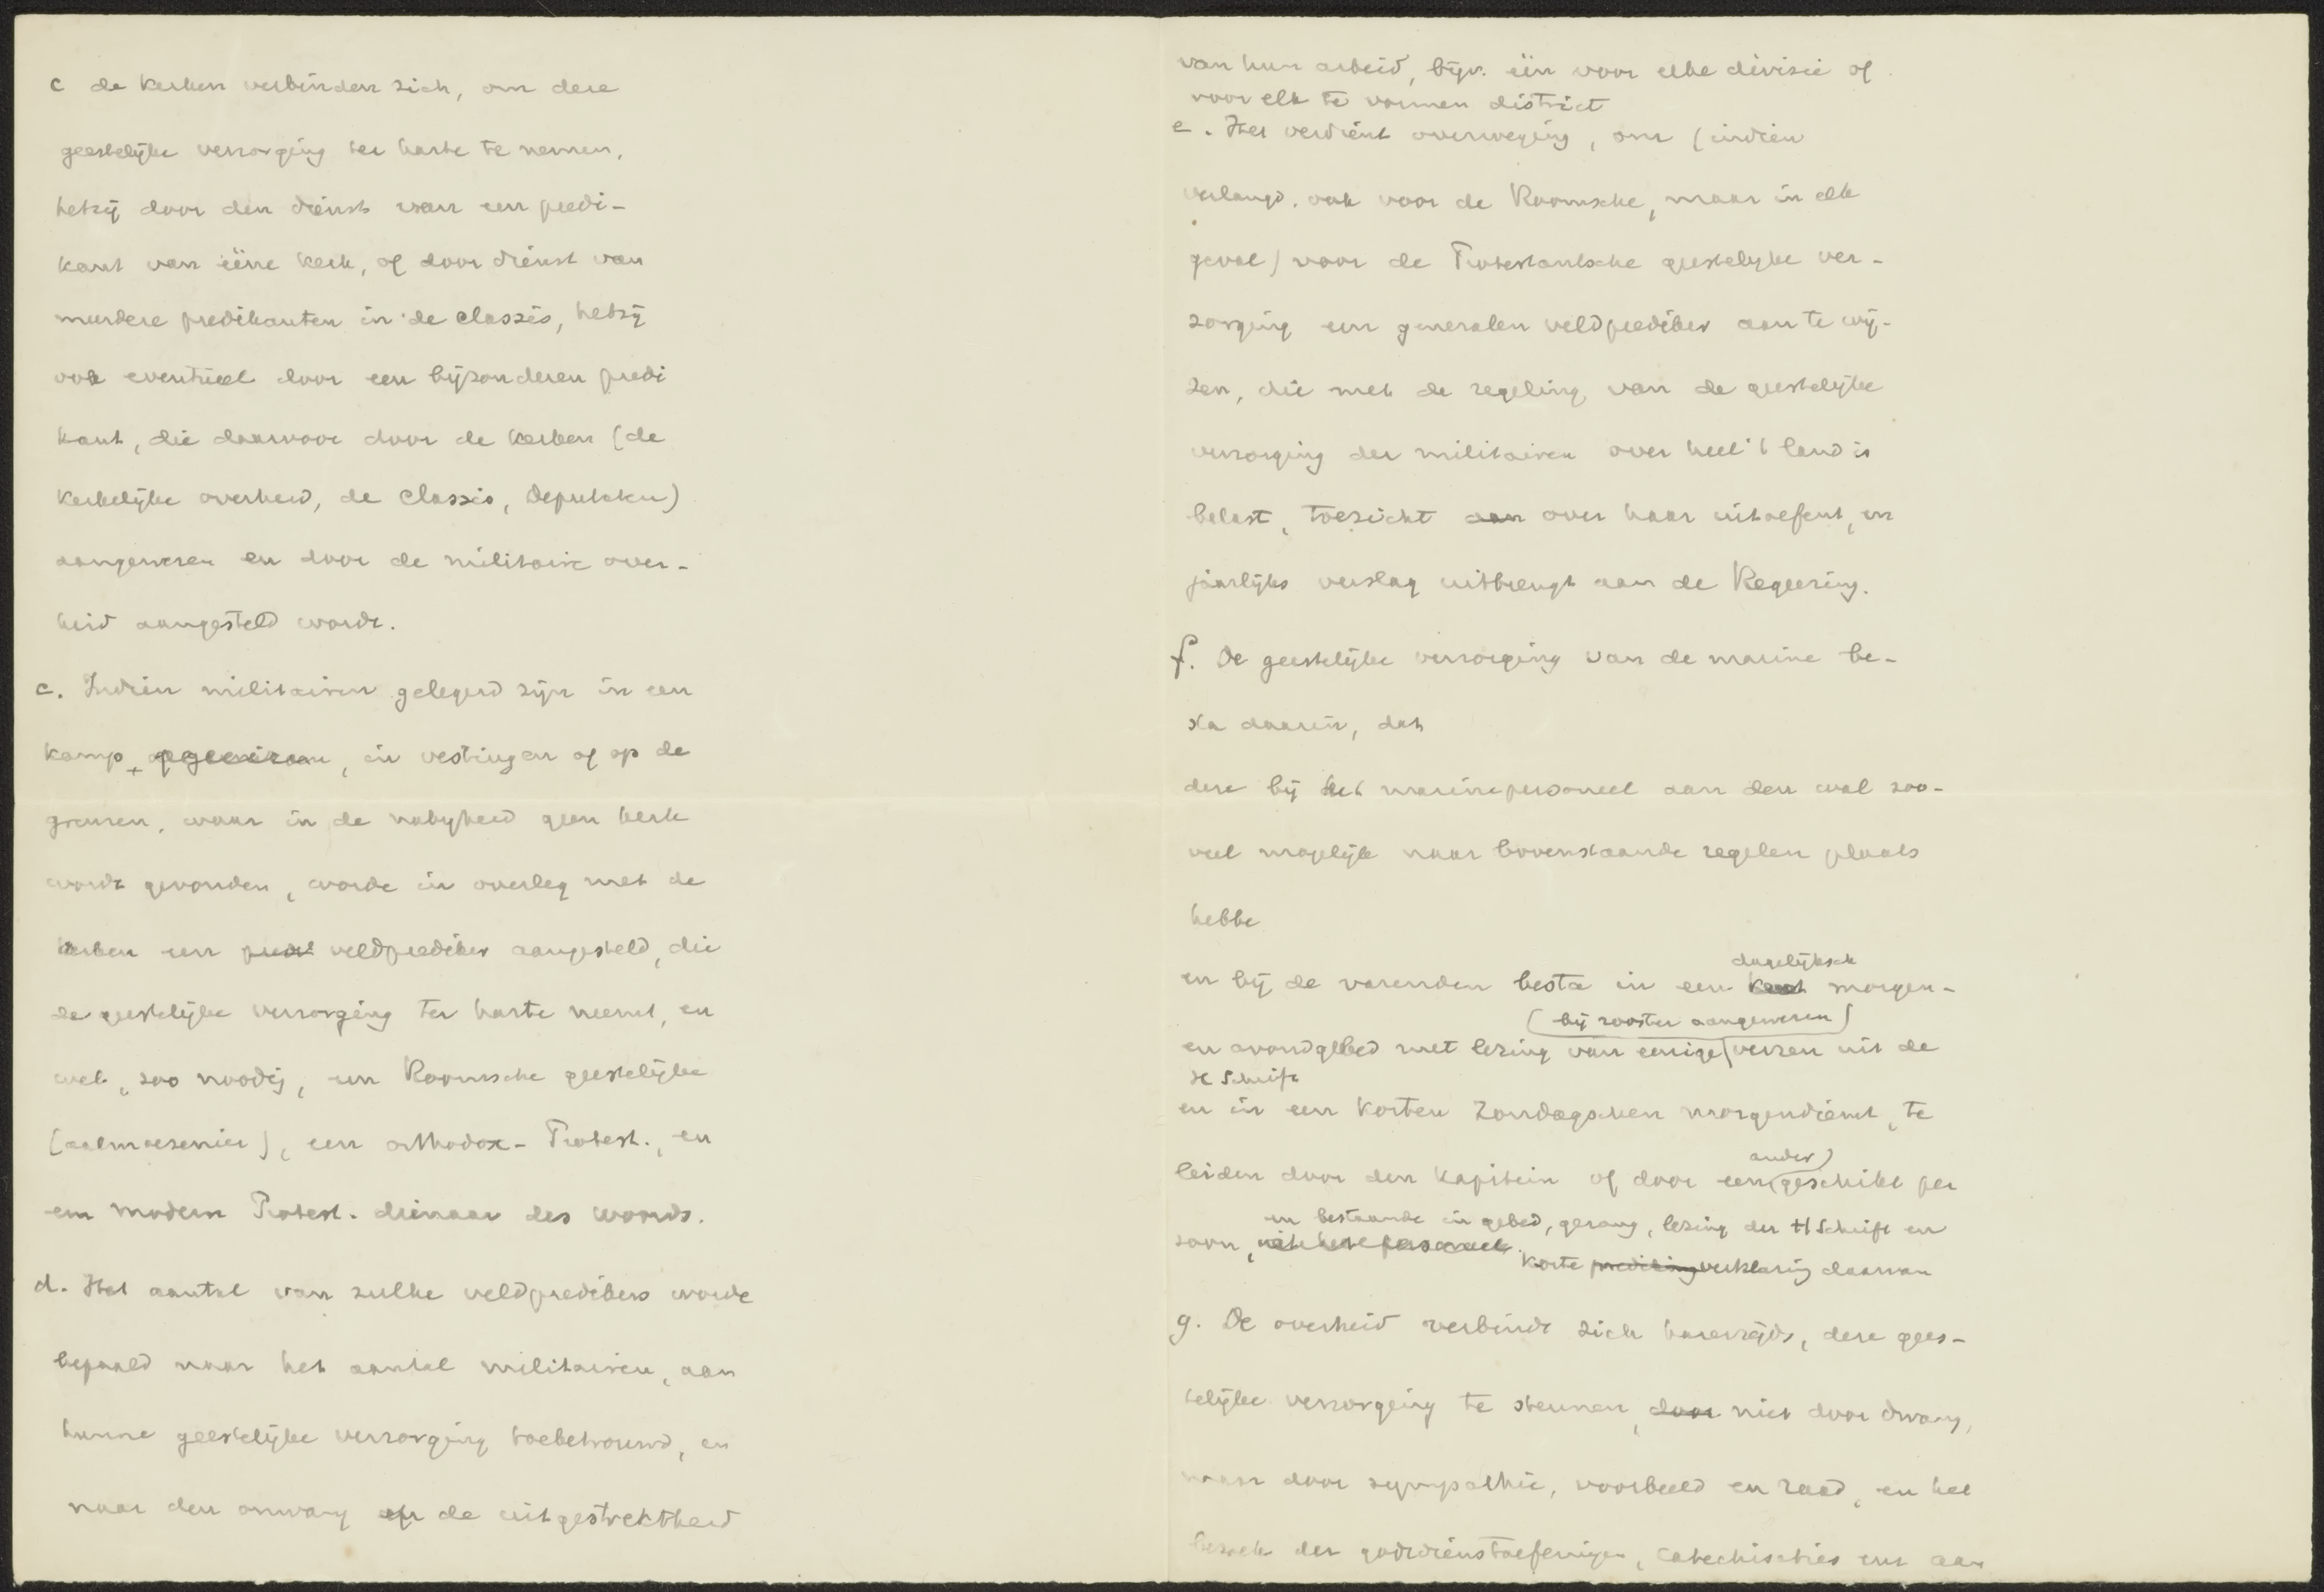 c de kerken verbinden zich, om deze
geestelijke verzorging ter harte te nemen,
hetzij door den dienst van een predi-
kant van ééne kerk, of door dienst van
meerdere predikanten in de classis, hetzij
ook eventueel door een bijzonderen predi
kant, die daarvoor door de kerken (de
kerkelijke overheid, de classis, Deputaten)
aangewezen en door de militaire over-
heid aangesteld wordt.
c. Indien militairen gelegerd zijn in een
kamp, in vestingen of op de
grenzen, waar in de nabijheid geen kerk
wordt gevonden, worde in overleg met de
kerken een veldprediker aangesteld, die
de geestelijke verzorging ter harte neemt, en
wel, zoo noodig, een Roomsche geestelijke
(aalmoezenier), een orthodox-Protest., en
een modern Protest. dienaar des woords.
d. Het aantal van zulke veldpredikers worde
bepaald naar het aantal militairen, aan
hunne geestelijke verzorging toebetrouwd, en
naar den omvang en de uitgestrektheid
van hun arbeid, bijv. één voor elke divisie of
voor elk te vormen district
e. Het verdient overweging, om (indien
verlangd, ook voor de Roomsche, maar in elk
geval) voor de Protestantsche geestelijke ver-
zorging een generalen veldprediker aan te wij-
zen, die met de regeling van de geestelijke
verzorging der militairen over heel 't land is
belast, toezicht aan over haar uitoefent, en
jaarlijks verslag uitbrengt aan de Regeering.
f. De geestelijke verzorging van de marine be-
sta daarin, dat
deze bij het marinepersoneel aan den wal zoo-
veel mogelijk naar bovenstaande regelen plaats
hebbe
dagelijksch
en bij de varenden besta in een kort morgen-
(bij rooster aangewezen)
en avondgebed met lezing van eenige verzen uit de
H Schrift
en in een korten Zondagschen morgendienst, te
ander)
leiden door den kapitein of door een geschikt per
en bestaande in gebed, gezang, lezing der H Schrift en
soon, uit het personeel.
korte prediking verklaring daarvan
g. De overheid verbindt zich harerzijds, deze gees-
telijke verzorging te steunen, door niet door dwang,
maar door sympathie, voorbeeld en raad, en het
bezoek der godsdienstoefeningen, catechisaties enz aan